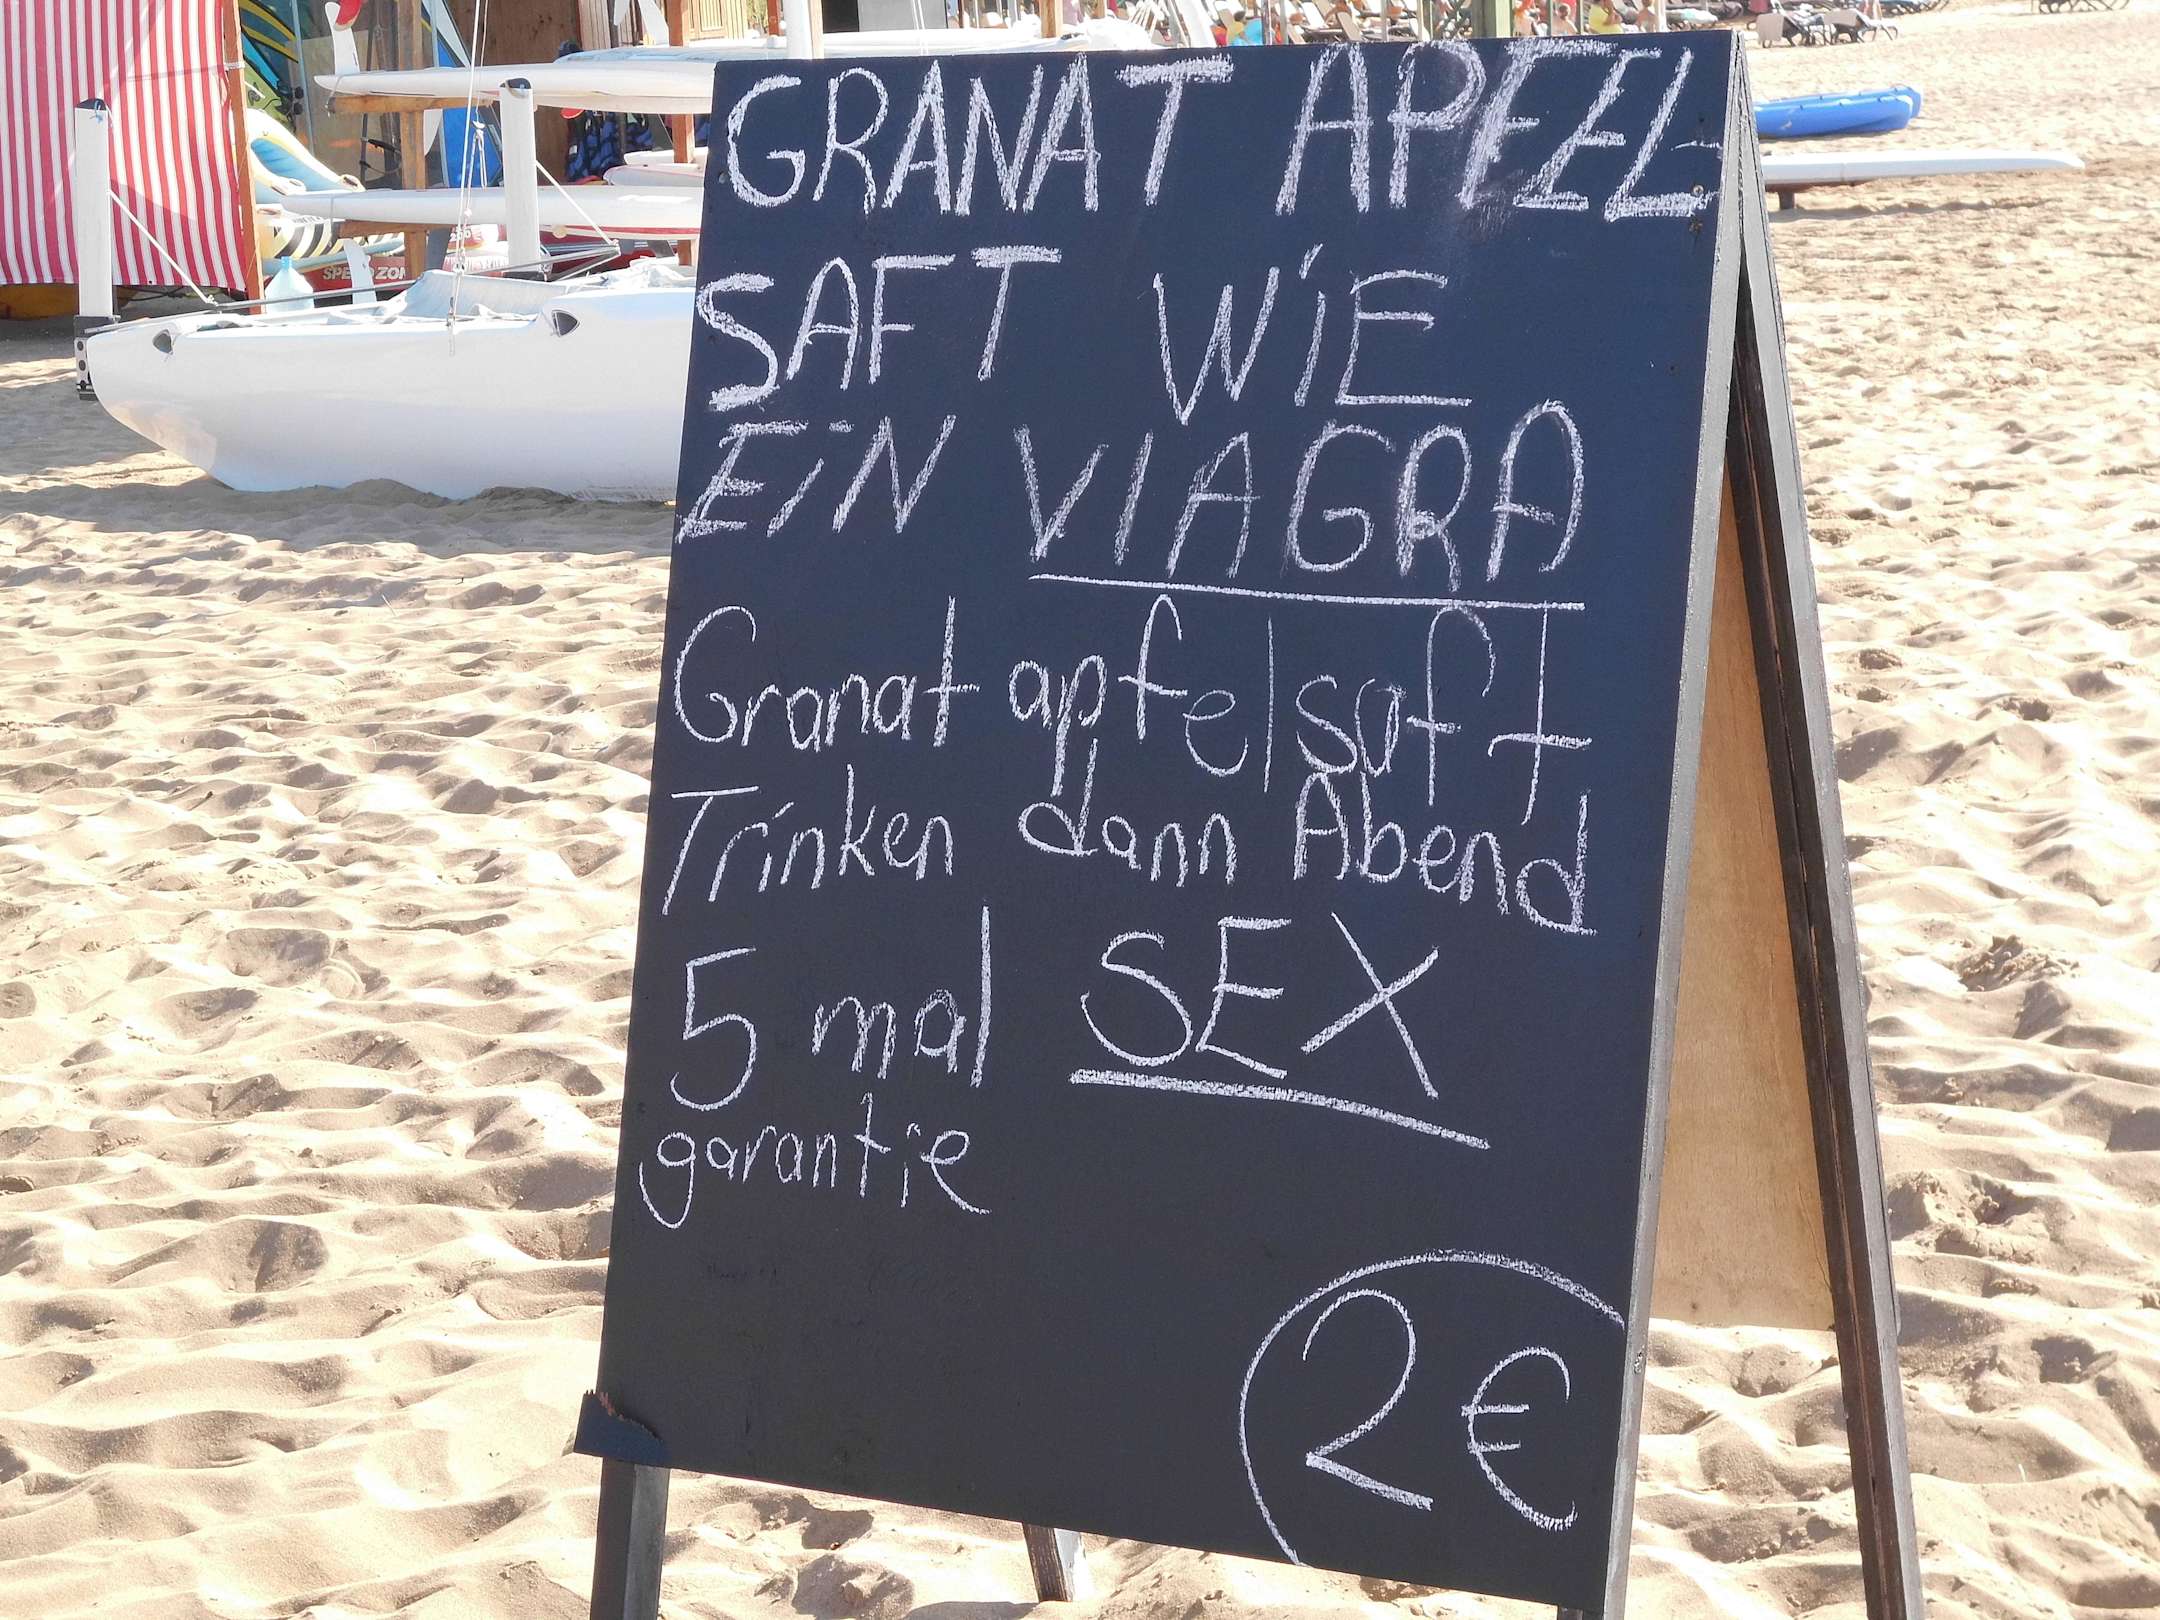 GRANAT APFEL
SAFT WiE
EiN VIAGRA
Granat apfelsaft
Trinken dann Abend
5 mal SEX
garantie
2€
SPEED ZON